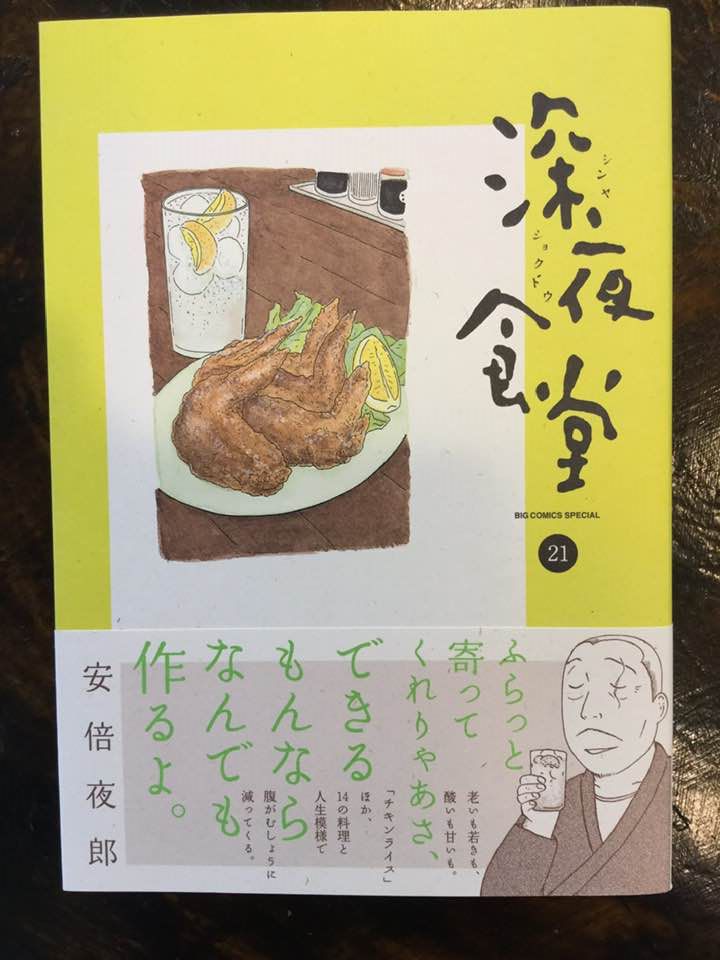 深夜
シンヤ
食堂
ショクドウ
BIG COMICS SPECIAL
21
ふらっと
寄って
くれりゃあさ、
できる
もんなら
なんでも
作るよ。
老いも若きも、
酸いも甘いも。
「チキンライス」
ほか、
14の料理と
人生模様で
腹がむしょうに
減ってくる。
安倍夜郎